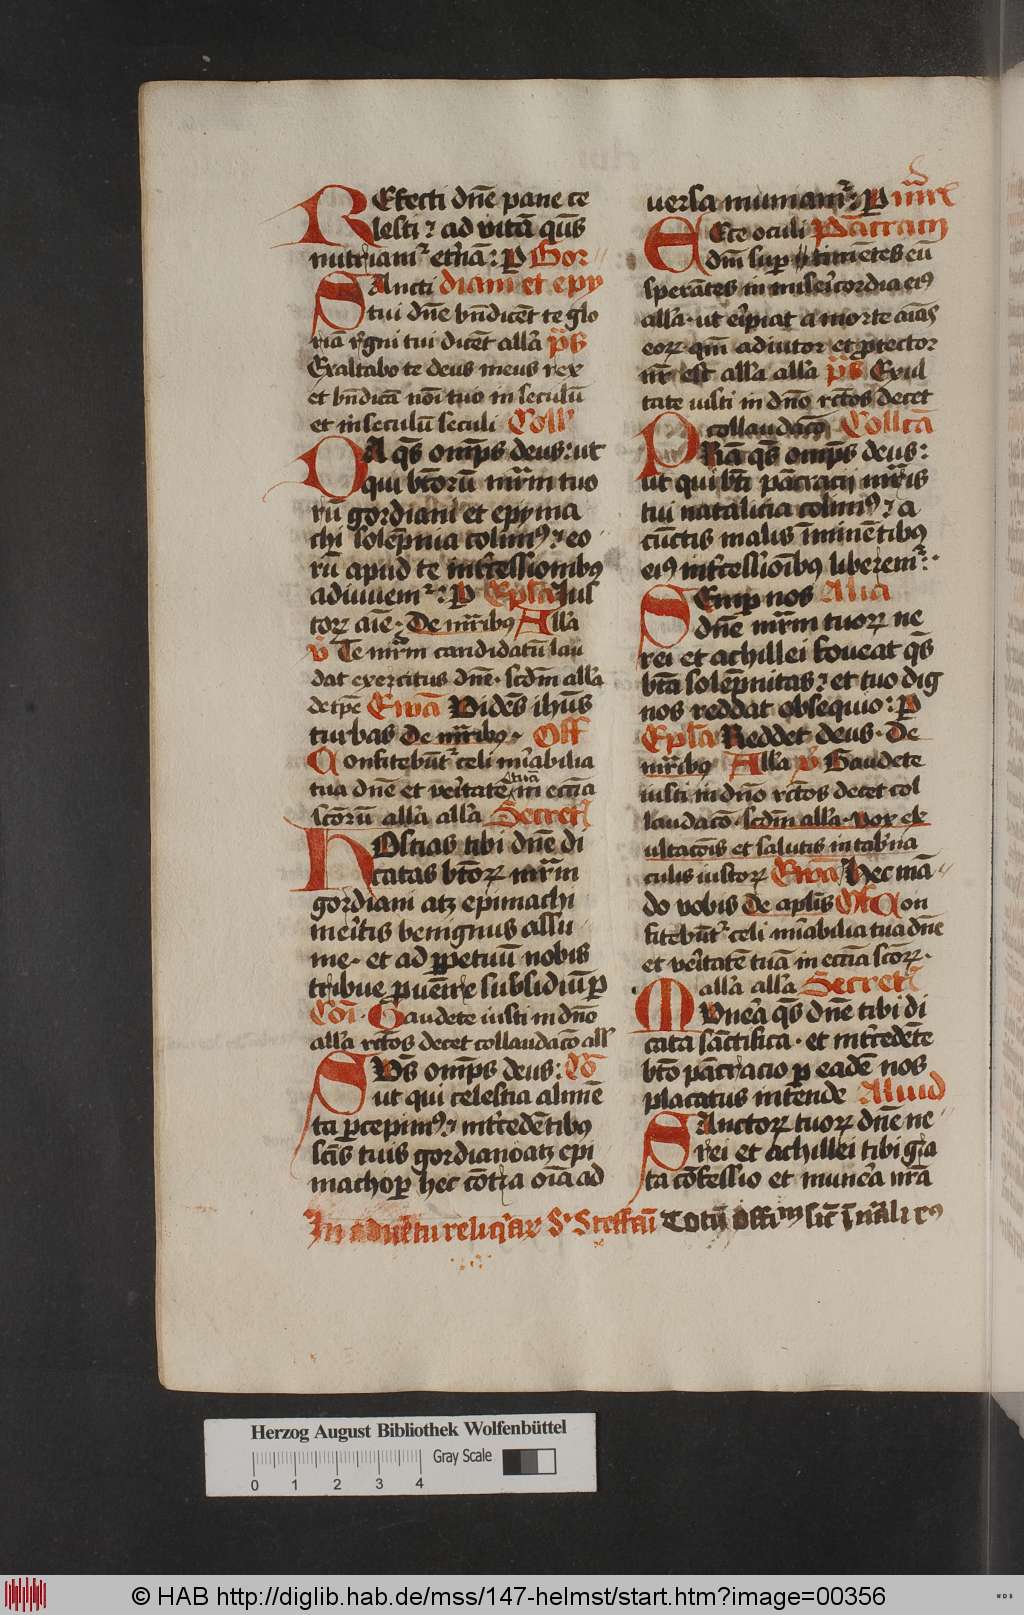 REfecti dn̄e pane ce
lesti ⁊ ad vitā qs̄
nutriant᷑ etnā: P Gor
SAncti diani et epy
tui dn̄e bn̄dicēt te glo
riā rͤgni tui dicēt all'a p̄s
Exaltabo te deus meus rex
et bn̄dicā noī tuo in seculū
et in seculū seculi Coll'
DA qs̄ omp̄s deus: ut
qui btōrū mr̄m tuo
rū gordiani et epyma
chi solēpnia colimꝰ ⁊ eo
rū apud te int̄cessionibꝰ
adiuuemͬ: P Epl̄a Jus
torꝝ aīe· De mr̄ibꝰ All'a
v̄ Te mr̄m candidatū lau
dat exercitus dn̄e· scdm all'a
de tpe Ewā Vidēs ihūs
turbas de mr̄ibꝰ· Off
Confitebūt᷑ celi mīabilia
tua dn̄e et veritatē tuā in ecc̄ia
scōrū all'a all'a Secret̄
HOstias tibi dn̄e di
catas btōrꝝ mr̄m
gordiani atꝫ epimachi
meītis benignus assu
me· et ad ꝑpetuū nobis
tribue ꝓuēire subsidiū P
Cōī· Gaudete iusti in dn̄o
all'a rc̄tos decet collaudacō all'
QVs̄ omp̄s deus: Cō
ut qui celestia alimē
ta ꝑcepimꝰ ⁊ int̄cedētibꝰ
scīs tuis gordiano atꝫ epi
machoꝑ hec cōtra oīa ad
uersa muniamͬ: P
Ecce oculi Pācracij
dn̄i suꝑ timētes eū
sperātes in misericordia eiꝰ
all'a· ut eīpiat a morte aīas
eorꝝ qm̄ adiutor et ꝓtector
nr̄ est all'a all'a p̄s Exul
tate iusti in dn̄o rc̄tos decet
collaudacō Coll'tā
PRīa qs̄ omp̄s deus:
ut qui btī pācracij mr̄is
tui natalicia colimꝰ ⁊ a
cūctis malis īminētibꝰ
eiꝰ int̄cessioībꝰ liberemͬ:
SEmꝑ nos Alia
dn̄e mr̄m tuorꝝ ne
rei et achillei foueat qs̄
btā solēpnitas ⁊ et tuo dig
nos reddat obsequio: P
Epl̄a Reddet deus· De
mr̄ibꝰ All'a v̄ Gaudete
iusti in dn̄o rc̄tos decet col
laudacō· scdm all'a· vox ex
ultacōis et salutis in tab̄na
culis iustorꝝ Ewā Hec mā
do vobis de apl̄is Off Con
fitebūt᷑ celi mīabilia tua dn̄e
et veritatē tuā in ecc̄ia scōrꝝ·
all'a all'a Secret̄
MVnera qs̄ dn̄e tibi di
cata sāctifica· et int̄cedēte
btō pācracio ꝑ eadē nos
placatus intende Aliud
SAnctorꝝ tuorꝝ dn̄e ne
rei et achillei tibi gra
ta cōfessio et munera nrā
In aduētu reliq̄iarꝝ S· Steffani Totū offm̄
Herzog August Bibliothek Wolfenbüttel
Gray Scale
0 1 2 3 4
© HAB http://diglib.hab.de/mss/147-helmst/start.htm?image=00356